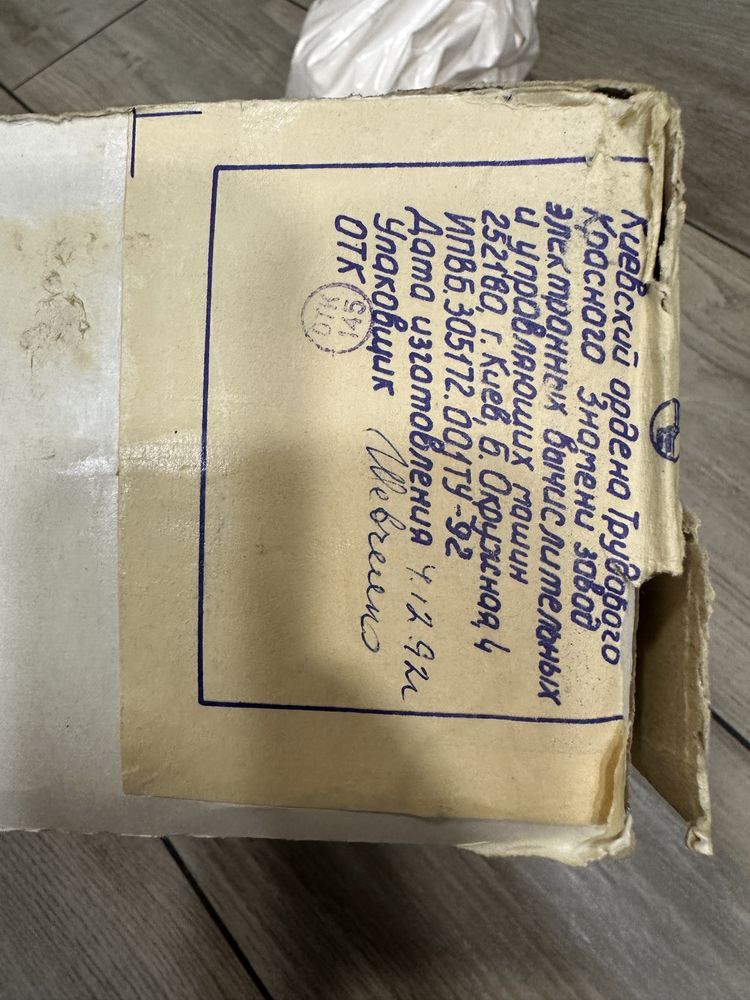 Киевский ордена Трудового
Красного Знамени завод
электронных вычислительных
и управляющих машин
252180, г. Киев, Б. Окружная, 4
ИПВБ 305172.001ТУ-92
Дата изготовления 4.12.92г
Упаковщик
ОТК
ОТК
145